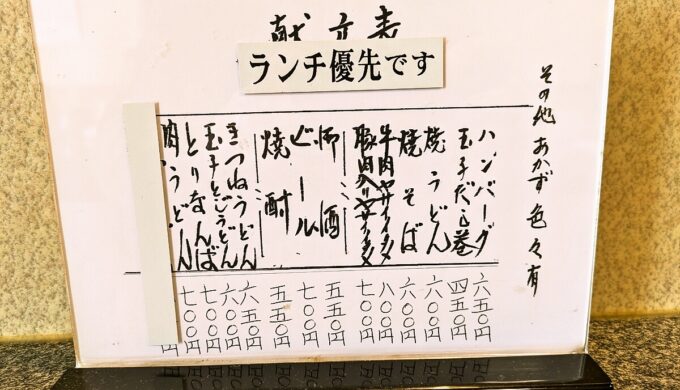 献立表
ランチ優先です
その他 おかず 色々有
ハンバーグ 六五〇円
玉子だし巻 四五〇円
焼うどん 六〇〇円
焼そば 六〇〇円
牛肉ヤサイイタメ 八〇〇円
豚肉入りヤサイイタメ 七〇〇円
御酒 五五〇円
ビール 七〇〇円
焼酎 五五〇円
きつねうどん 六五〇円
玉子とじうどん 六〇〇円
とりなんば 七〇〇円
肉うどん 七〇〇円